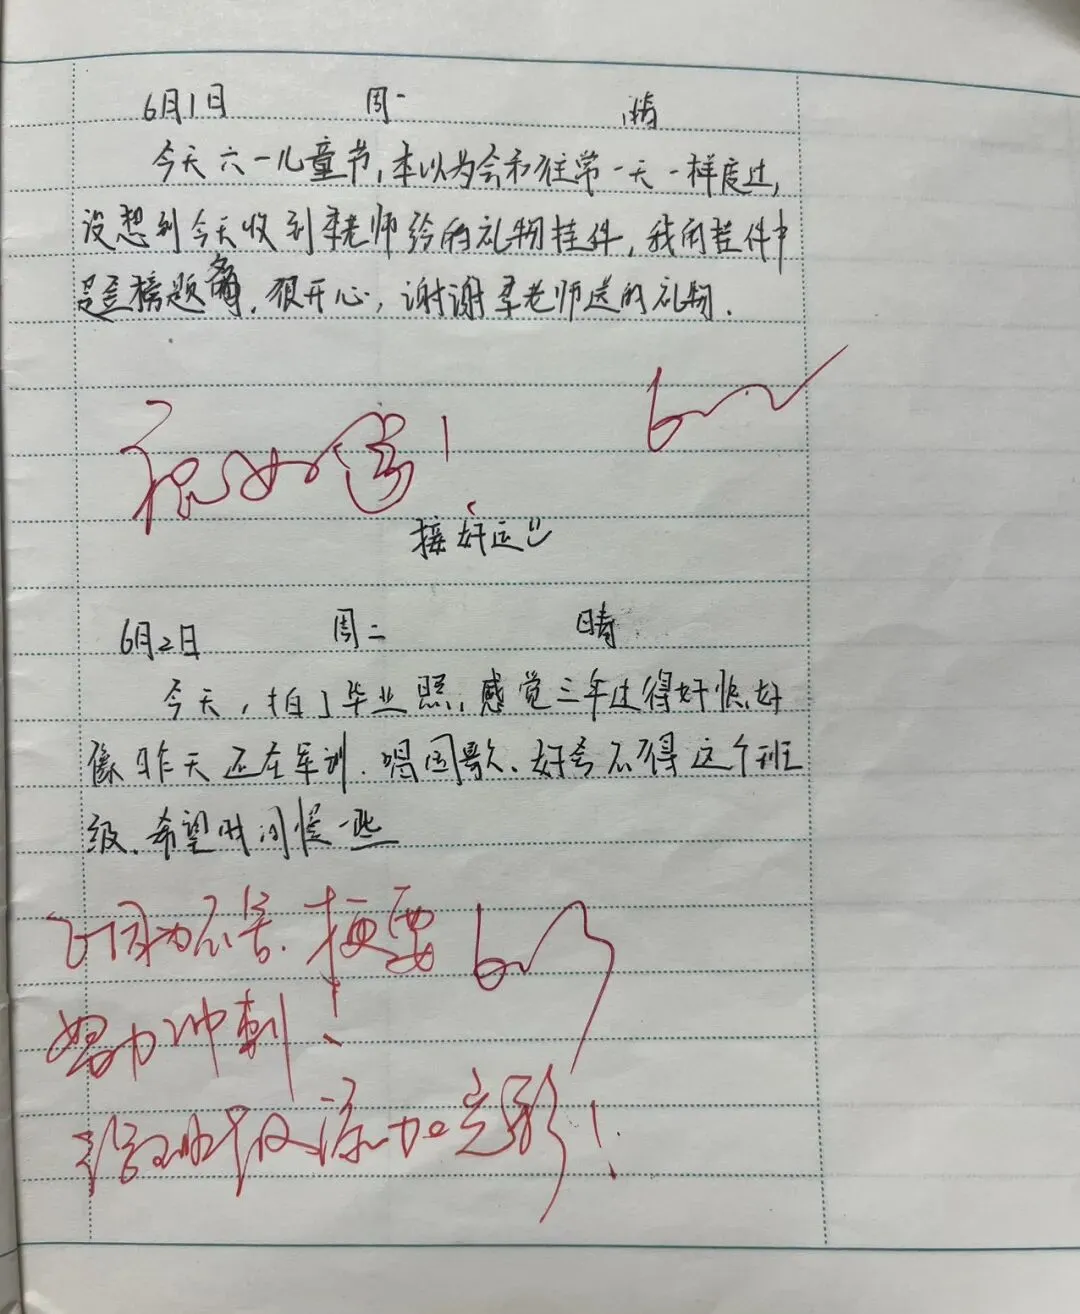 6月1日 周一 晴
今天六一儿童节,本以为会和往常一天一样度过,
没想到今天收到李老师给的礼物挂件,我的挂件中
是金榜题名,很开心,谢谢李老师送的礼物.
祝好运!
接好运
6月2日 周二 晴
今天,拍了毕业照,感觉三年过得好快,好
像昨天还在军训、唱国歌、好舍不得这个班
级、希望时间慢一些
因为不舍.更要
努力冲刺!
给班级添加光彩!